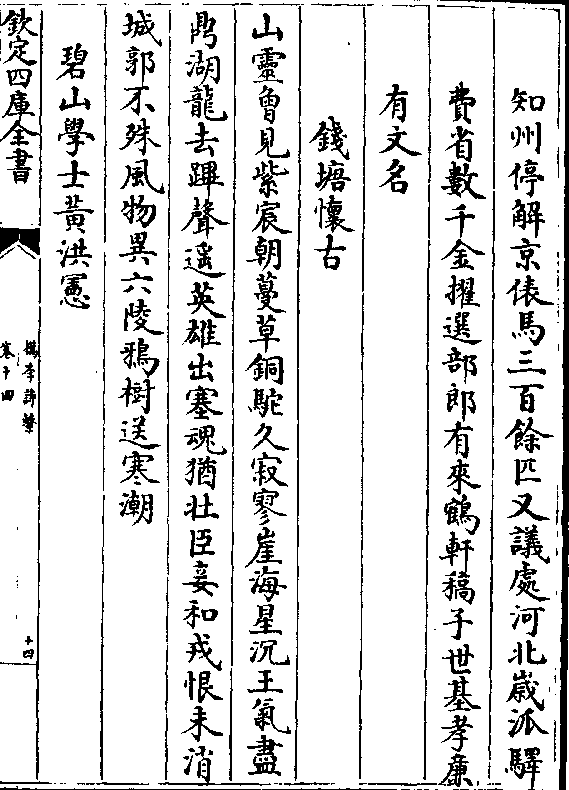 知州停解京俵馬三百餘匹又議處河北歲派驛
費省數千金擢選部郎有來鶴軒稿子世基孝廉
有文名
錢塘懷古
山靈曾見紫宸朝蔓草銅駝久寂寥崖海星沉王氣盡
鼎湖龍去蹕聲遥英雄出塞魂猶壯臣妾和戎恨未消
城郭不殊風物異六陵鴉樹送寒潮
碧山學士黃洪憲
欽定四庫全書
檇李詩繫
卷十四
十四